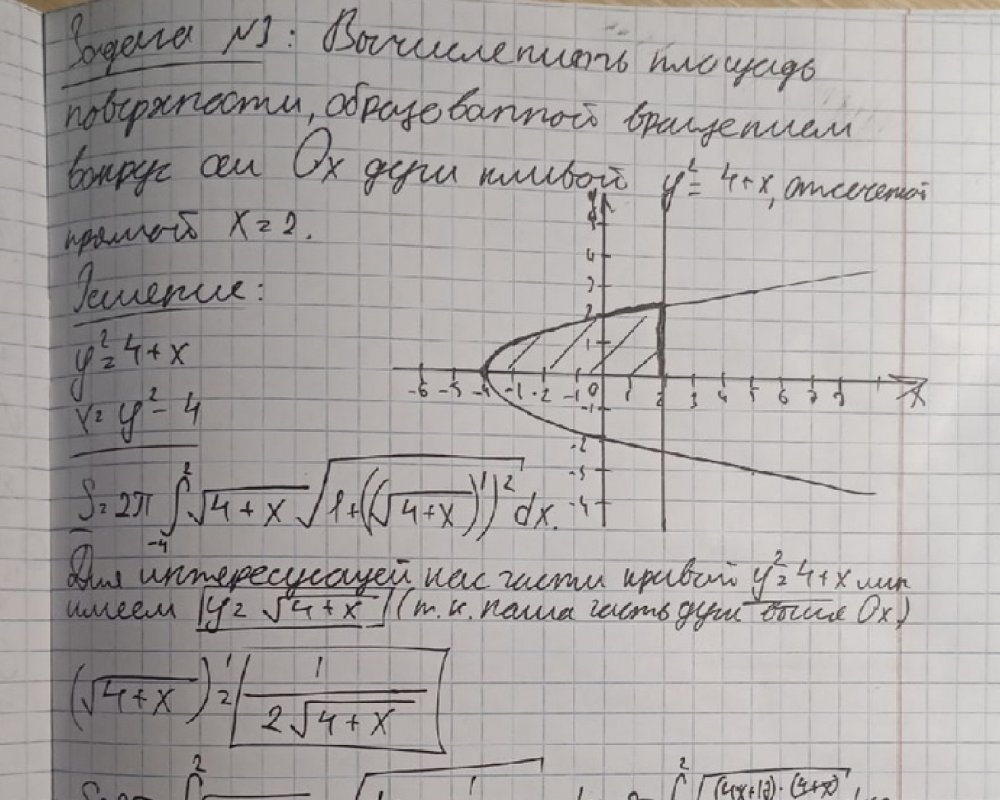 Задача №3: Вычислить площадь
поверхности, образованной вращением
вокруг оси Ox дуги кривой y² = 4+x, отсеченной
прямой x = 2.
Решение:
y² = 4 + x
x = y² - 4
S = 2π ∫₋₄² √(4+x) √(1+((√(4+x))')²) dx.
Для интересующей нас части кривой y² = 4+x мы
имеем y = √(4+x) (т.к. наша часть дуги выше Ox)
(√(4+x))' = 1/(2√(4+x))
4 3 2 1
-6 -5 -4 -2 -1 0 1 2 3 4 5 6 7 8 x
-1 -2 -3 -4